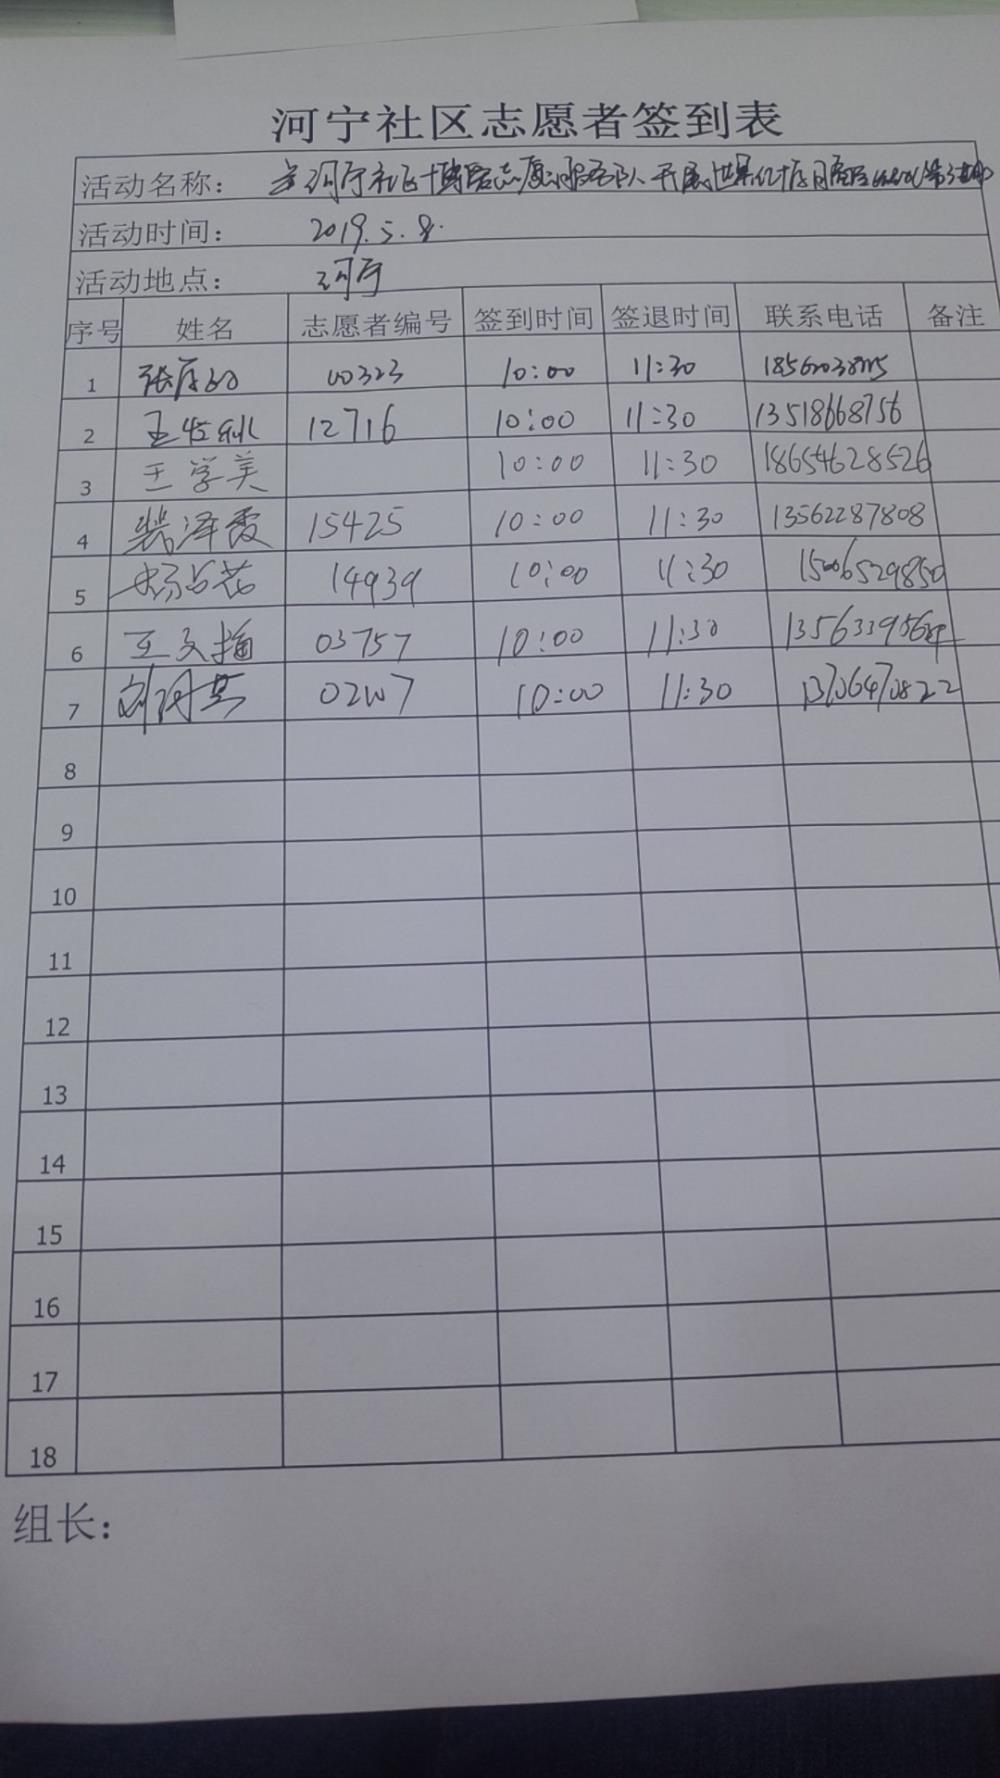 河宁社区志愿者签到表
活动名称： 河宁社区 志愿服务队 开展世界红十字日
活动时间： 2019.5.8.
活动地点： 河宁
序号 姓名 志愿者编号 签到时间 签退时间 联系电话 备注
1 张 00323 10:00 11:30
2 王 12716 10:00 11:30 13518668756
3 王学美 10:00 11:30 18654628526
4 裴泽霞 15425 10:00 11:30 13562287808
5 14939 10:00 11:30 15006529850
6 王文梅 03757 10:00 11:30
7 刘 10:00 11:30 13706470822
8
9
10
11
12
13
14
15
16
17
18
组长：